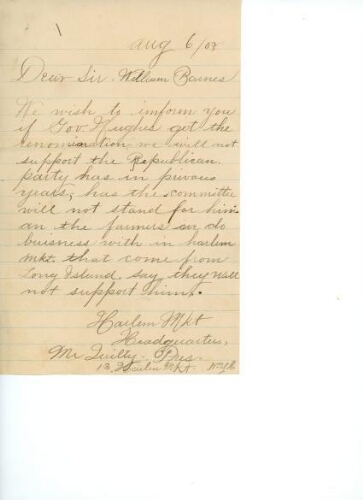 Aug 6/08
Dear Sir. William Barnes
We wish to imform you
if Gov. Hughes get the
renomination we will not
support the Republican
party has in privous
years, has the committe
will not stand for him.
an the farmers an do
buisness with in harlem
Mkt. that come from
Long Island. say they will
not support him.
Harlem Mkt
Headquarters.
Mr Quilty - Pres.
13 Harlem Mkt